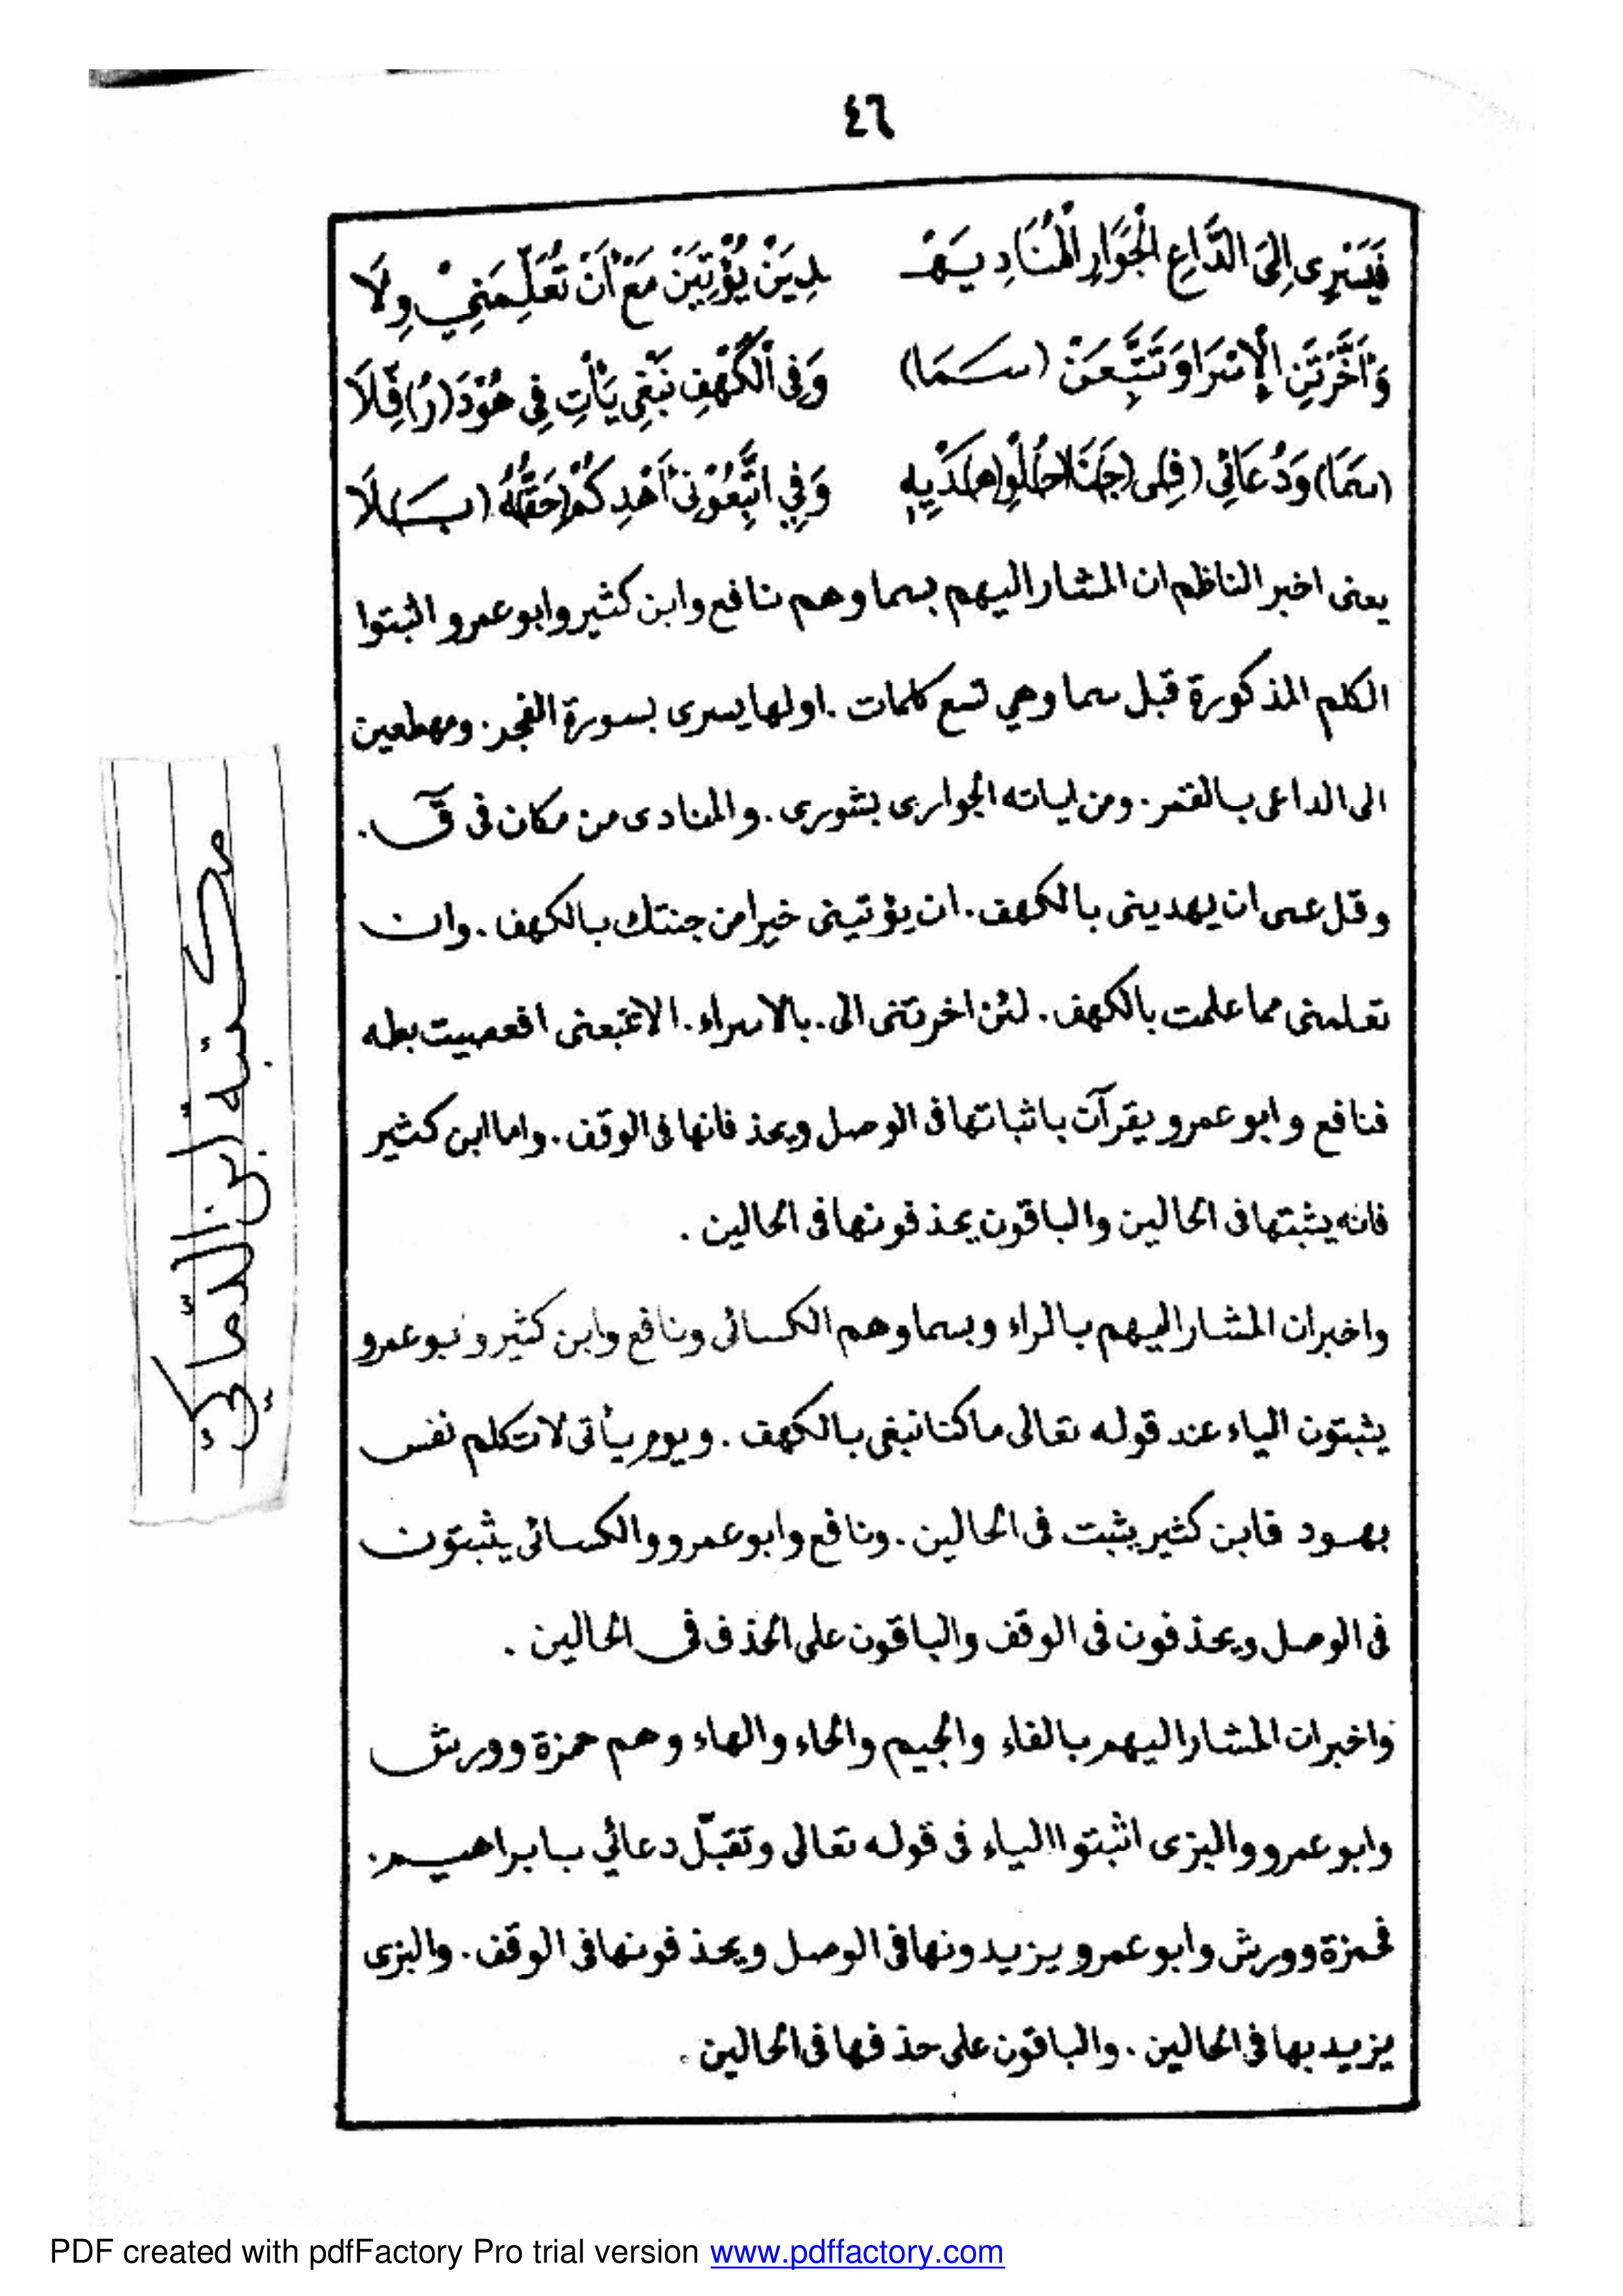 ٤٦
فَيَسْرِى اِلَى الدَّاعِ الْجَوَارِ الْمُنَادِ يَهْـ    ـدِيَنْ يُؤْتِيَنْ مَعْ اَنْ تُعَلِّمَنِيْ وِلَا
وَاَخَّرْتَنِ الْاِسْرَا وَتَتَّبِعَنْ (سَمَا)    وَفِى الْكَهْفِ نَبْغِى يَأْتِ فِى هُوْدَ (رُ)فِّلَا
(سَمَا) وَدُعَائِي (فِـ)ى (جَـ)نَا (حُـ)لْوِ (هَـ)دْيِهِ    وَفِي اتَّبِعُوْنِى اَهْدِكُمْ (حَقُّهُ) (بَـ)لَا
يعنى اخبر الناظم ان المشار اليهم بسما وهم نافع وابن كثير وابو عمرو اثبتوا
الكلم المذكورة قبل سما وهي تسع كلمات . اولها يسرى بسورة الفجر . ومهطعين
الى الداعى بالقمر . ومن اياته الجوارى بشورى . والمنادى من مكان فى قٓ .
وقل عسى ان يهدينى بالكهف . ان يؤتينى خيرا من جنتك بالكهف . وان
تعلمنى مما علمت بالكهف . لئن اخرتنى الى . بالاسراء . الا تتبعنى افعصيت بطه
فنافع وابو عمرو يقرآن باثباتها فى الوصل ويحذفانها فى الوقف . واما ابن كثير
فانه يثبتها فى الحالين والباقون يحذفونها فى الحالين .
واخبر ان المشار اليهم بالراء وبسما وهم الكسائى ونافع وابن كثير وابو عمرو
يثبتون الياء عند قوله تعالى ما كنا نبغى بالكهف . ويوم يأتى لا تكلم نفس
بهود فابن كثير يثبت فى الحالين . ونافع وابو عمرو والكسائى يثبتون
فى الوصل ويحذفون فى الوقف والباقون على الحذف فى الحالين .
واخبر ان المشار اليهم بالفاء والجيم والحاء والهاء وهم حمزة وورش
وابو عمرو والبزى اثبتوا الياء فى قوله تعالى وتقبّل دعائي بابراهيم .
فحمزة وورش وابو عمرو يزيدونها فى الوصل ويحذفونها فى الوقف . والبزى
يزيد بها فى الحالين . والباقون على حذفها فى الحالين .
مكتبة ابن
PDF created with pdfFactory Pro trial version www.pdffactory.com